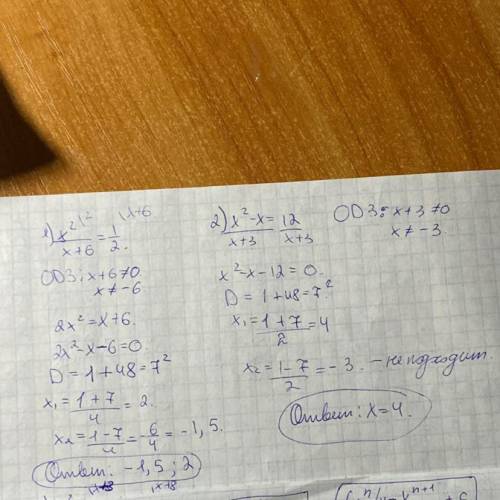 1) x²/(x+6) = 1/2. |² |x+6
ОДЗ: x+6≠0.
x≠-6
2x²=x+6.
2x²-x-6=0.
D=1+48=7²
x₁=(1+7)/4=2.
x₂=(1-7)/4=-6/4=-1,5.
Ответ: -1,5; 2
2) (x²-x)/(x+3)=12/(x+3)
ОДЗ: x+3≠0
x≠-3
x²-x-12=0.
D=1+48=7².
x₁=(1+7)/2=4
x₂=(1-7)/2=-3. - не подходит.
Ответ: x=4.